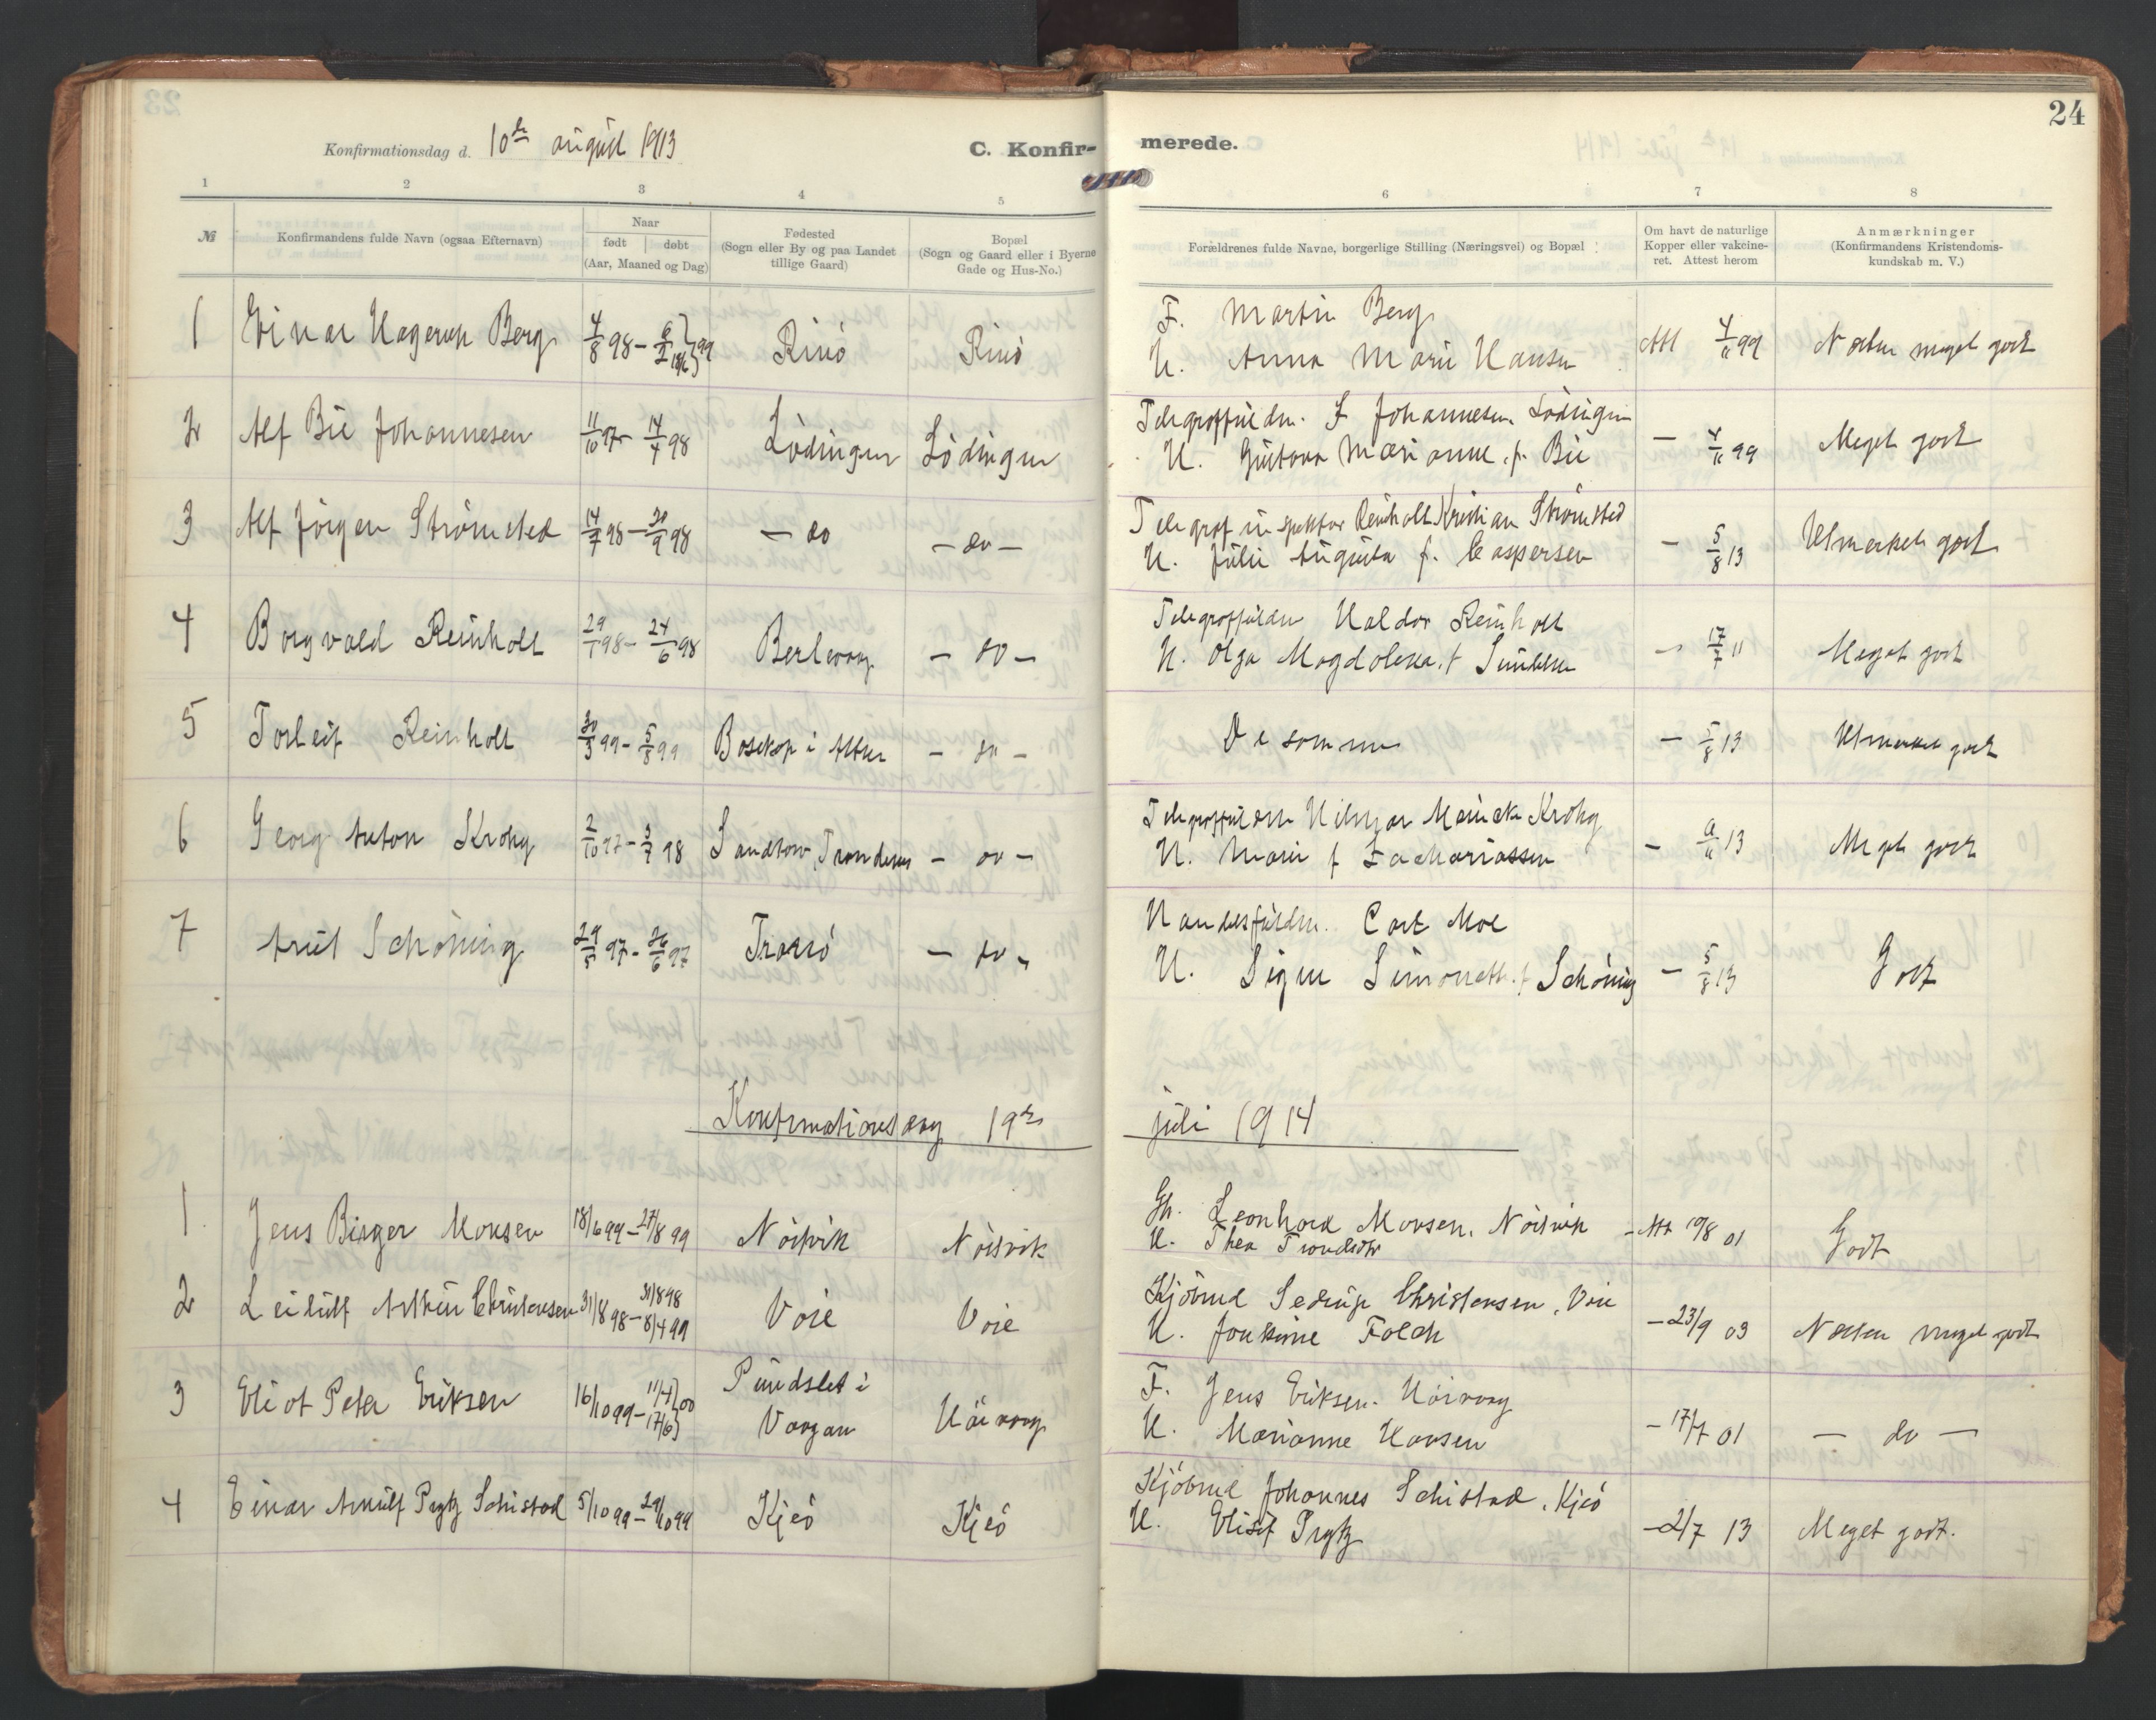 24
Konfirmationsdag d. 10de august 1913
C. Konfir- merede.
1 2 3 4 5 6 7 8
№
Konfirmandens fulde Navn (ogsaa Efternavn)
Naar
født | døbt
(Aar, Maaned og Dag)
Fødested
(Sogn eller By og paa Landet
tillige Gaard)
Bopæl
(Sogn og Gaard eller i Byerne
Gade og Hus-No.)
Forældrenes fulde Navne, borgerlige Stilling (Næringsvei) og Bopæl
Om havt de naturlige
Kopper eller vakcine-
ret. Attest herom
Anmærkninger
(Konfirmandens Kristendoms-
kundskab m. V.)
1 Einar Hagerup Berg 4/8 98 – Rinö Rinö F. Martin Berg Att 4/11 99 Næsten meget godt
H. Anna Marie Hansen
2 Alf Bie Johannesen 11/10 97 – 14/4 98 Lödingen Lödingen Telegraffuldm. Johannesen, Lödingen – 4/11 99 Meget godt
H. Gustava Marianne, f. Bie
3 Alf Jörgen Strömsted 14/7 98 – 20/9 98 – do – do – Telegrafinspektør Reinholt Kristian Strömsted – 5/8 13 Utmerket godt
H. Julie Augusta f. Caspersen
4 Borgvald Reinholt 29/1 98 – 24/6 98 Berlevaag – do – Telegraffuldm Haldor Reinholt – 17/7 11 Meget godt
H. Olga Magdalena, f
5 Torleif Reinholt 30/3 99 – 5/8 99 Bosekop i Alten – do – De samme – 5/8 13 Utmerket godt
6 Georg Anton Krohg 2/10 97 – 3/7 98 Sandtorv, Trondenes – do – Telegraffuldm Hilmar Meincke Krohg – 13 Meget godt
H. Marie f Zachariassen
7 Schöning 29/5 97 – 26/6 97 Tromsö – do – Handelsfuldm. Carl Moe – 5/8 13 Godt
H. Signe Simonette f Schöning
Konfirmationsdag 19de juli 1914
1 Jens Birger Monsen 18/6 99 – 27/8 99 Nöisvik Nöisvik Gb. Leonhard Monsen, Nöisvik – Att 19/8 01 Godt
H. Thea Trondsdtr
2 Leidulf Arthur Christensen 31/8 98 – 31/8 98 8/4 99 Voie Voie Kjöbmd Sedrup Christensen, Voie – 23/9 03 Næsten meget godt
H. Jonkime Falch
3 Eliot Peter Eriksen 16/10 99 – 11/4 17/6 } 00 Pundslet i Vaagan Höivaag F. Jens Eriksen. Höivaag – 17/7 01 – do –
H. Marianne Hansen
4 Einar Arnulf Prytz Schistad 5/10 99 – 29/10 99 Kjeö Kjeö Kjöbmd Johannes Schistad, Kjeö – 2/7 13 Meget godt.
H. Elisef Prytz